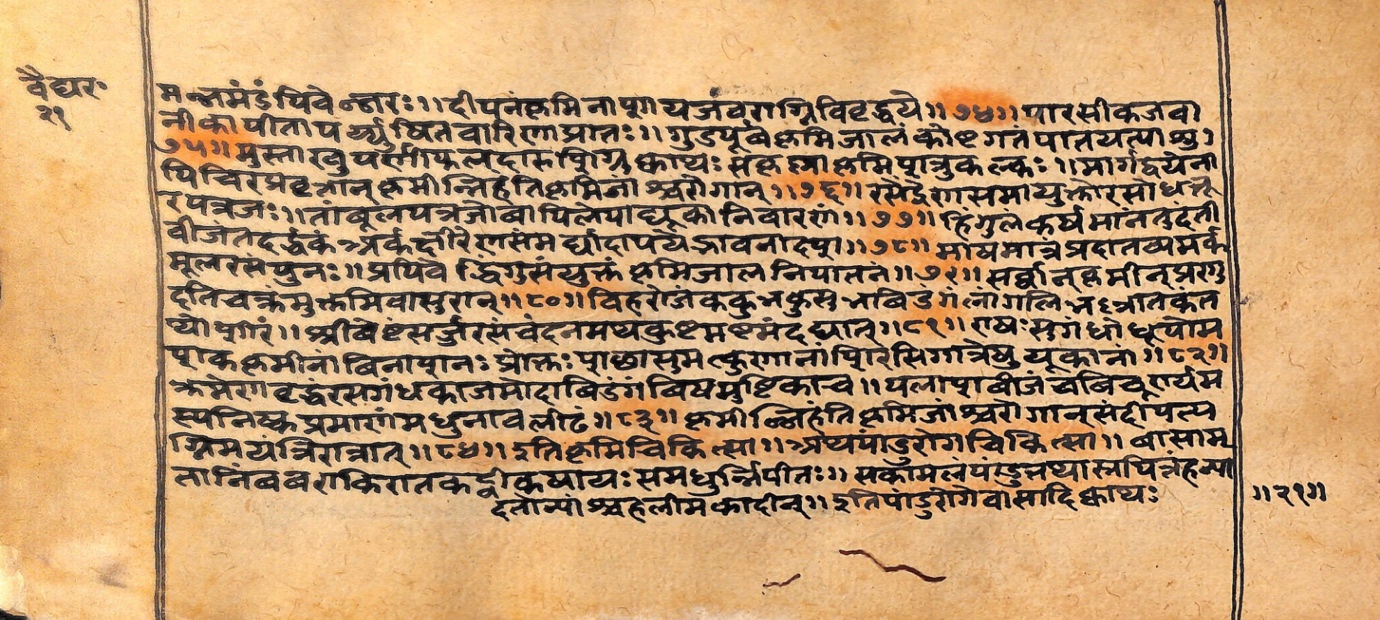 वैद्यर॰
२१
दीपनं कृमिनाशाय जठराग्निविवृद्धये॥७४॥ पारसीकजवा
नीका पीता पर्य्युषितवारिणा प्रातः॥ गुडपूर्वा कृमिजालं कोष्टगतं पातयत्याशु।
७५॥ मुस्ताखुपर्णीफलदारुशिग्रुक्वाथः सकृष्णाकृमिशत्रुकल्कः॥ मार्गद्वयेना
पि चिरप्रवृत्तान् कृमीन्निहंति कृमिजांश्च रोगान्॥७६॥ रसेंद्रेण समायुक्तो रसो धत्तू
रपत्रजः॥ तांबूलपत्रजो वापि लेपाद्यूकानिवारणं॥७७॥ हिंगुलं कर्षमानं तु दंती
बीजं तदर्द्धकं अर्कक्षीरेण संमर्द्या भावना दश॥७८॥ माषमात्रं प्रदातव्यमर्क
मूलरसं पुनः॥ प्रपिबेद्धिंगुसंयुक्तं कृमिजालनिपातनं॥७९॥ सर्वान् कृमीन् प्रणु
दति चक्रंमुक्तमिवासुरान्॥८०॥ ककुभकुसुमविडंगं लांगलिभल्लातकं त
थोशीरं॥ श्रीवेष्टं सर्जरसं चंदनमथ कुष्टमष्टमं दद्यात्॥८१॥ एषः सुगंधो धूपो म
शककृमीनां विनाशनः प्रोक्तः शय्यासु मत्कुणानां शिरसि गात्रेषु यूकानां॥८२॥
क्रमेण वृद्धं रसगंधकाजमोदाविडंगं विषमुष्टिका च॥ पलाशबीजं च विचूर्ण्यम
स्य निष्कप्रमाणं मधुनावलीढं॥८३॥ कृमीन्निहंति कृमिजांश्च रोगान् संदीपत्य
ग्निमयं त्रिरात्रात्॥८४॥ इति कृमिचिकित्सा॥ अथ पांडुरोगचिकित्सा॥ वासामृ
तानिंबवराकिरातकट्वीकषायः समधुर्निपीतः॥ सकामलं पांडुमथास्रपित्तं हन्या
हलीमकादीन्॥ इति पांडुरोगे वासादिक्वाथः ॥२१॥